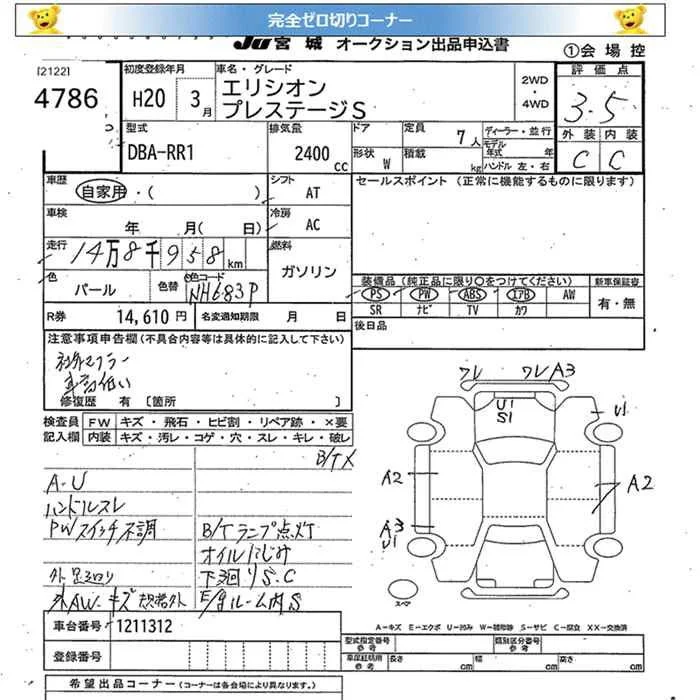 完全ゼロ切りコーナー
JU 宮城 オークション出品申込書
①会場控
[2122]
4786
初度登録年月
H20 3月
車名・グレード
エリシオン
プレステージS
2WD
・
4WD
評価点
3.5
外装 内装
C C
型式
DBA-RR1
排気量
2400 cc
ドア
形状 W
定員 7人
積載 kg
ディーラー・並行
モデル年式 年
ハンドル 左・右
車歴
自家用・( )
シフト
AT
車検
年 月( 日)
冷房
AC
走行
14万8千958 km
燃料
ガソリン
色
パール
色替
色コード
NH683P
R券 14,610円
名変通知期限 月 日
セールスポイント (正常に機能するものに限ります)
装備品 (純正品に限り○をつけてください)
新車保証書
PS PW ABS エアB AW
SR ナビ TV カワ
有・無
後日品
注意事項申告欄(不具合内容等は具体的に記入して下さい)
社外マフラー
車高低い
修復歴 有 〔箇所 〕
検査員
記入欄
FW キズ・飛石・ヒビ割・リペア跡・×要
内装 キズ・汚レ・コゲ・穴・スレ・キレ・破レ
B/T X
A-U
ハンドルスレ
PWスイッチ不調
B/Tランプ点灯
オイルにじみ
外足回り
下回りS.C
外AW キズ 規格外
E/gルーム内S
ワレ ワレA3
U1
S1
U1
A2
A2
A3
U1
スペア
A-キズ E-エクボ U-凹み W-補修跡 S-サビ C-腐食 XX-交換済
車台番号 1211312
登録番号
型式指定番号
参考
類別区分番号
参考
車庫証明用
参考
長さ cm 幅 cm 高さ cm
希望出品コーナー (コーナーは各会場により異なります。)